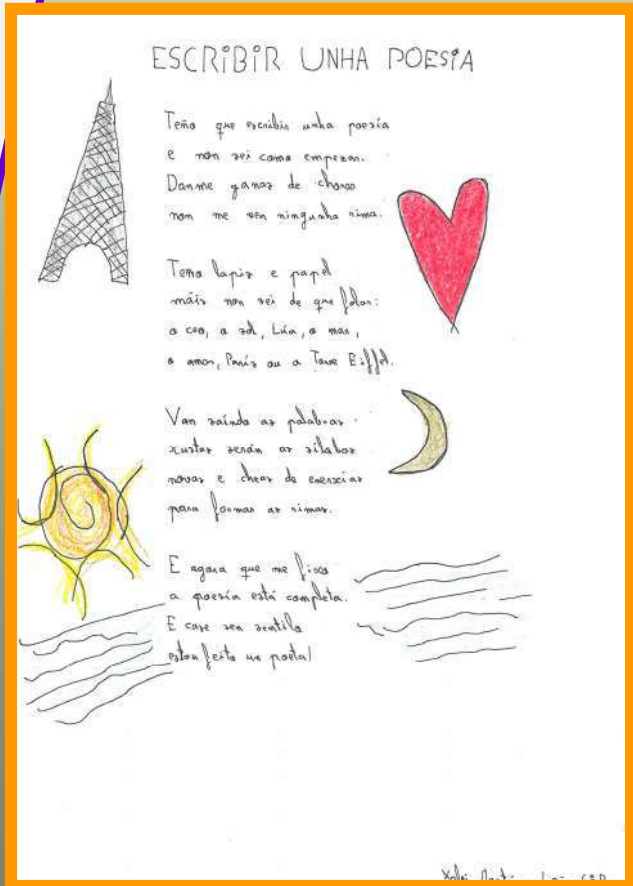 ESCRIBIR UNHA POESÍA
Teño que escribir unha poesía
e non sei como empezar.
Danme ganas de chorar
non me ven ningunha rima.
Teño lapis e papel
máis non sei de que falar:
o ceo, o sol, Lúa, o mar,
o amor, París ou a Torre Eiffel.
Van saíndo as palabras
xustas serán as sílabas
novas e cheas de enerxías
para formar as rimas.
E agora que me fixo
a poesía está completa.
E case sen sentilo
estou feito un poeta!